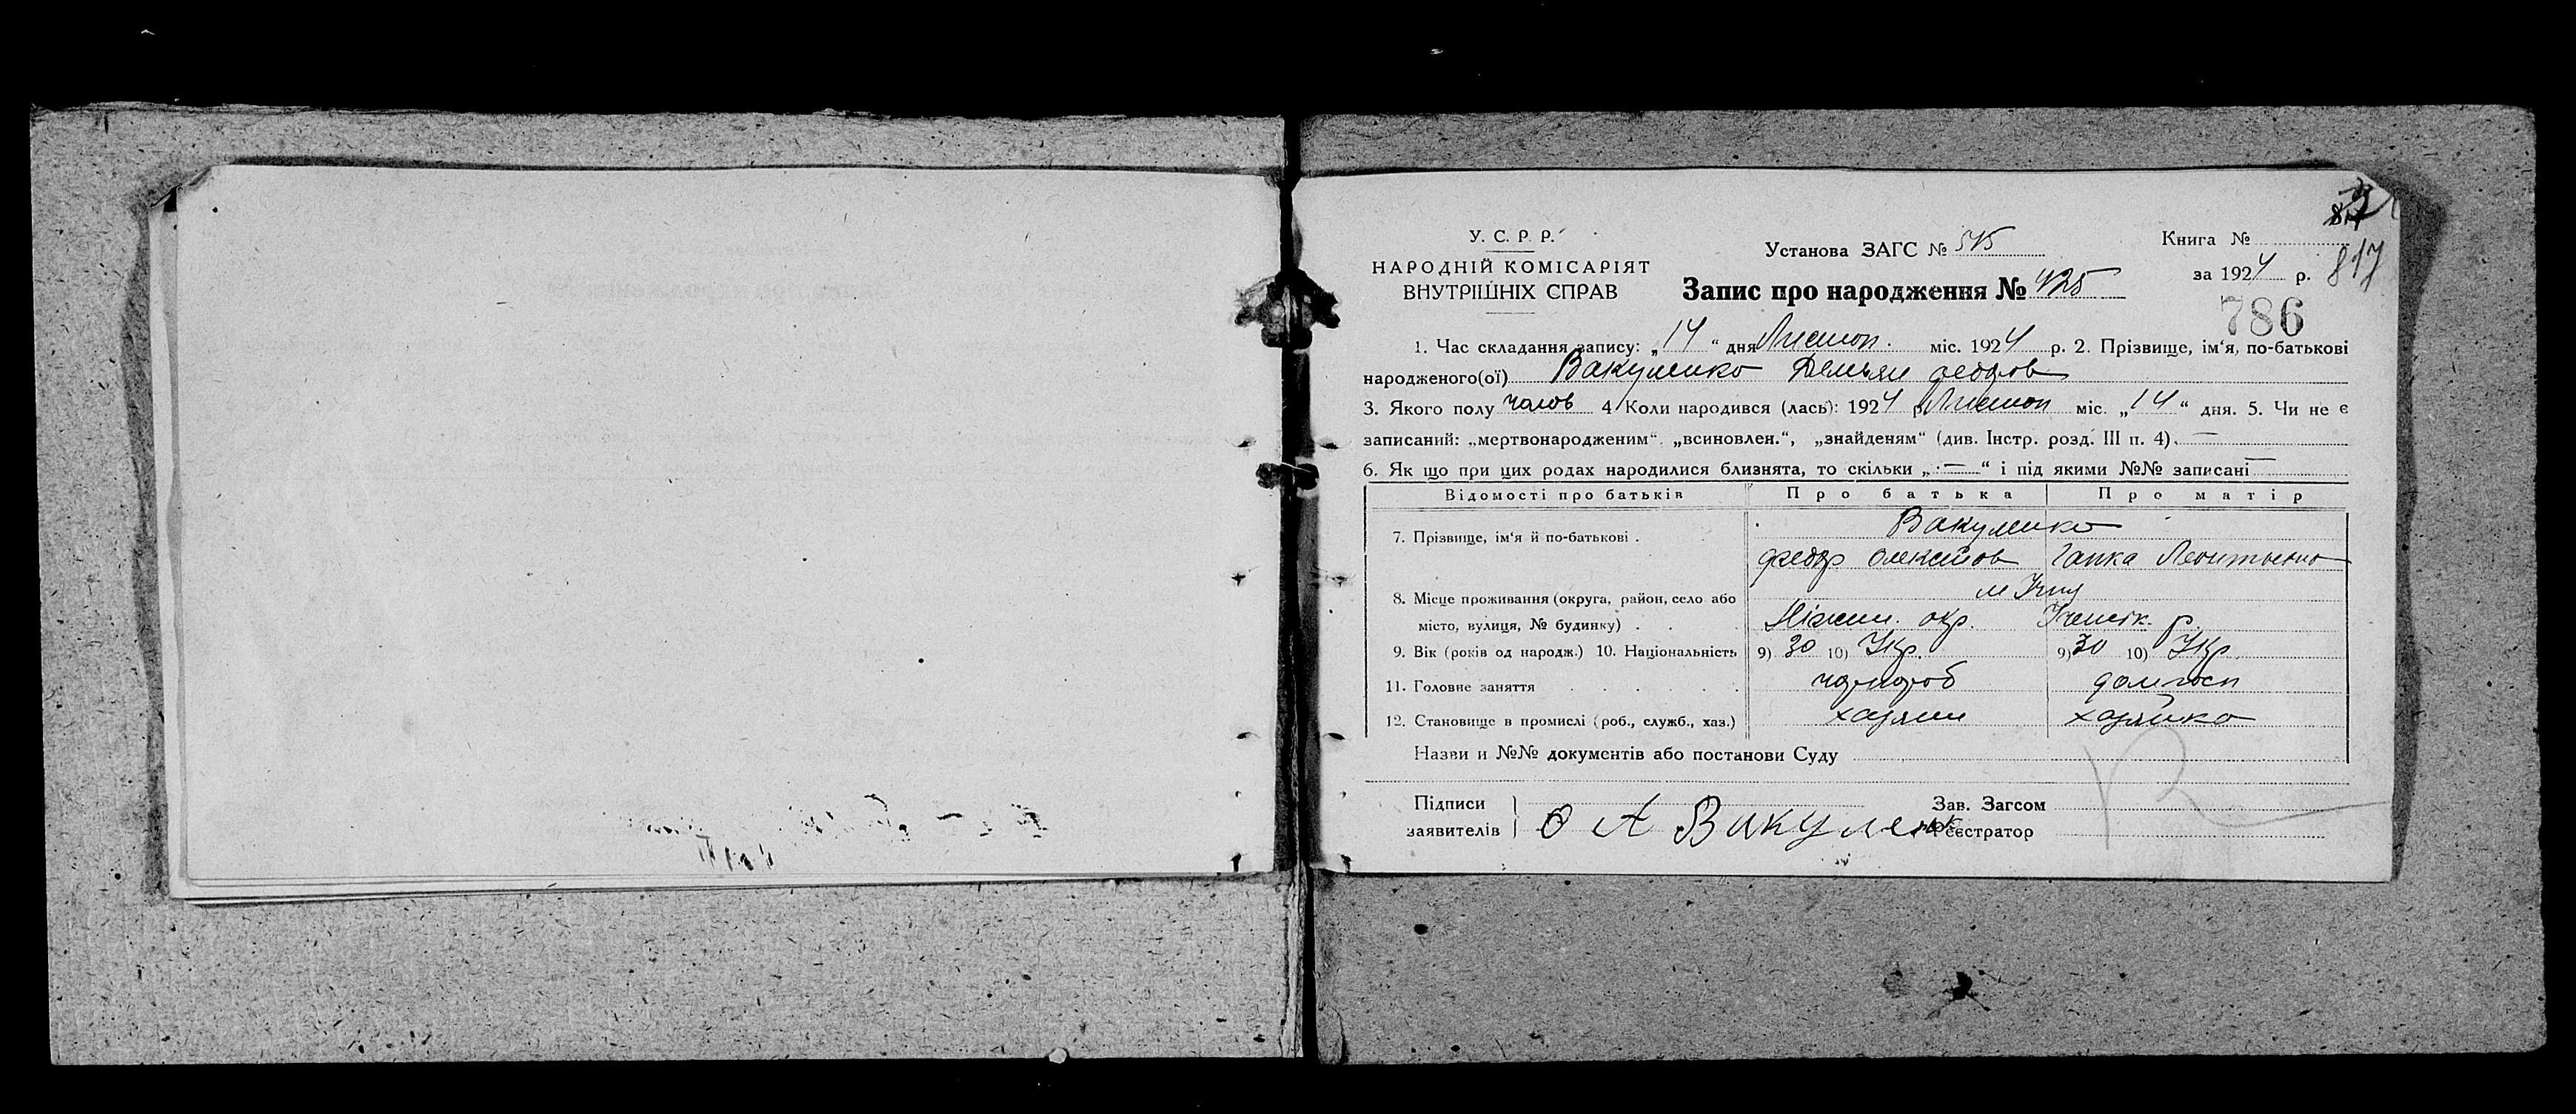 У. С. Р. Р.
НАРОДНІЙ КОМІСАРІЯТ
ВНУТРІШНІХ СПРАВ
Установа ЗАГС № 545
Запис про народження № 425
Книга №
за 1924 р.
817
786
1. Час складання запису: „14“ дня Листоп. міс. 1924 р. 2. Прізвище, ім'я, по-батькові
народженого(ої) Вакуленко Демьян Федоров
3. Якого полу чолов 4 Коли народився (лась): 1924 р. Листоп міс. „14“ дня. 5. Чи не є
записаний: „мертвонародженим“, „всиновлен.“, „знайденям“ (див. Інстр. розд. III п. 4). —
6. Як що при цих родах народилися близнята, то скільки „—“ і під якими №№ записані —
Відомості про батьків Про батька Про матір
7. Прізвище, ім'я й по-батькові . Вакуленко
Федор Олексіїов Гапка Леонтьевна
8. Місце проживання (округа, район, село або м Ічня
місто, вулиця, № будинку) . . Ніжин. окр. Іченськ. р.
9. Вік (років од народж.) 10. Національність 9) 30 10) Укр. 9) 30 10) Укр.
11. Головне заняття . . . . . . чорнороб домгосп
12. Становище в промислі (роб., служб., хаз.) хазяин хазяйка
Назви и №№ документів або постанови Суду
Підписи Зав. Загсом
заявителів Ф А Вакуленк Реєстратор